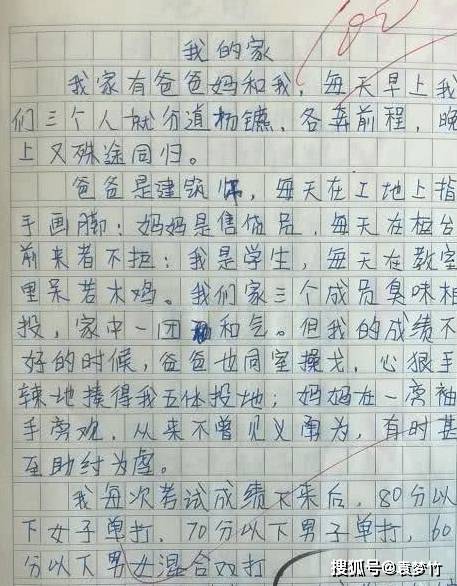 我的家
我家有爸爸妈和我，每天早上我
们三个人就分道扬镳，各奔前程，晚
上又殊途同归。
爸爸是建筑师，每天在工地上指
手画脚；妈妈是售货员，每天在柜台
前来者不拒；我是学生，每天在教室
里呆若木鸡。我们家三个成员臭味相
投，家中一团和气。但我的成绩不
好的时候，爸爸也同室操戈，心狠手
辣地揍得我五体投地；妈妈在一旁袖
手旁观，从来不曾见义勇为，有时甚
至助纣为虐。
我每次考试成绩下来后，80分以
下女子单打，70分以下男子单打，60
分以下男女混合双打
搜狐号@袁梦竹